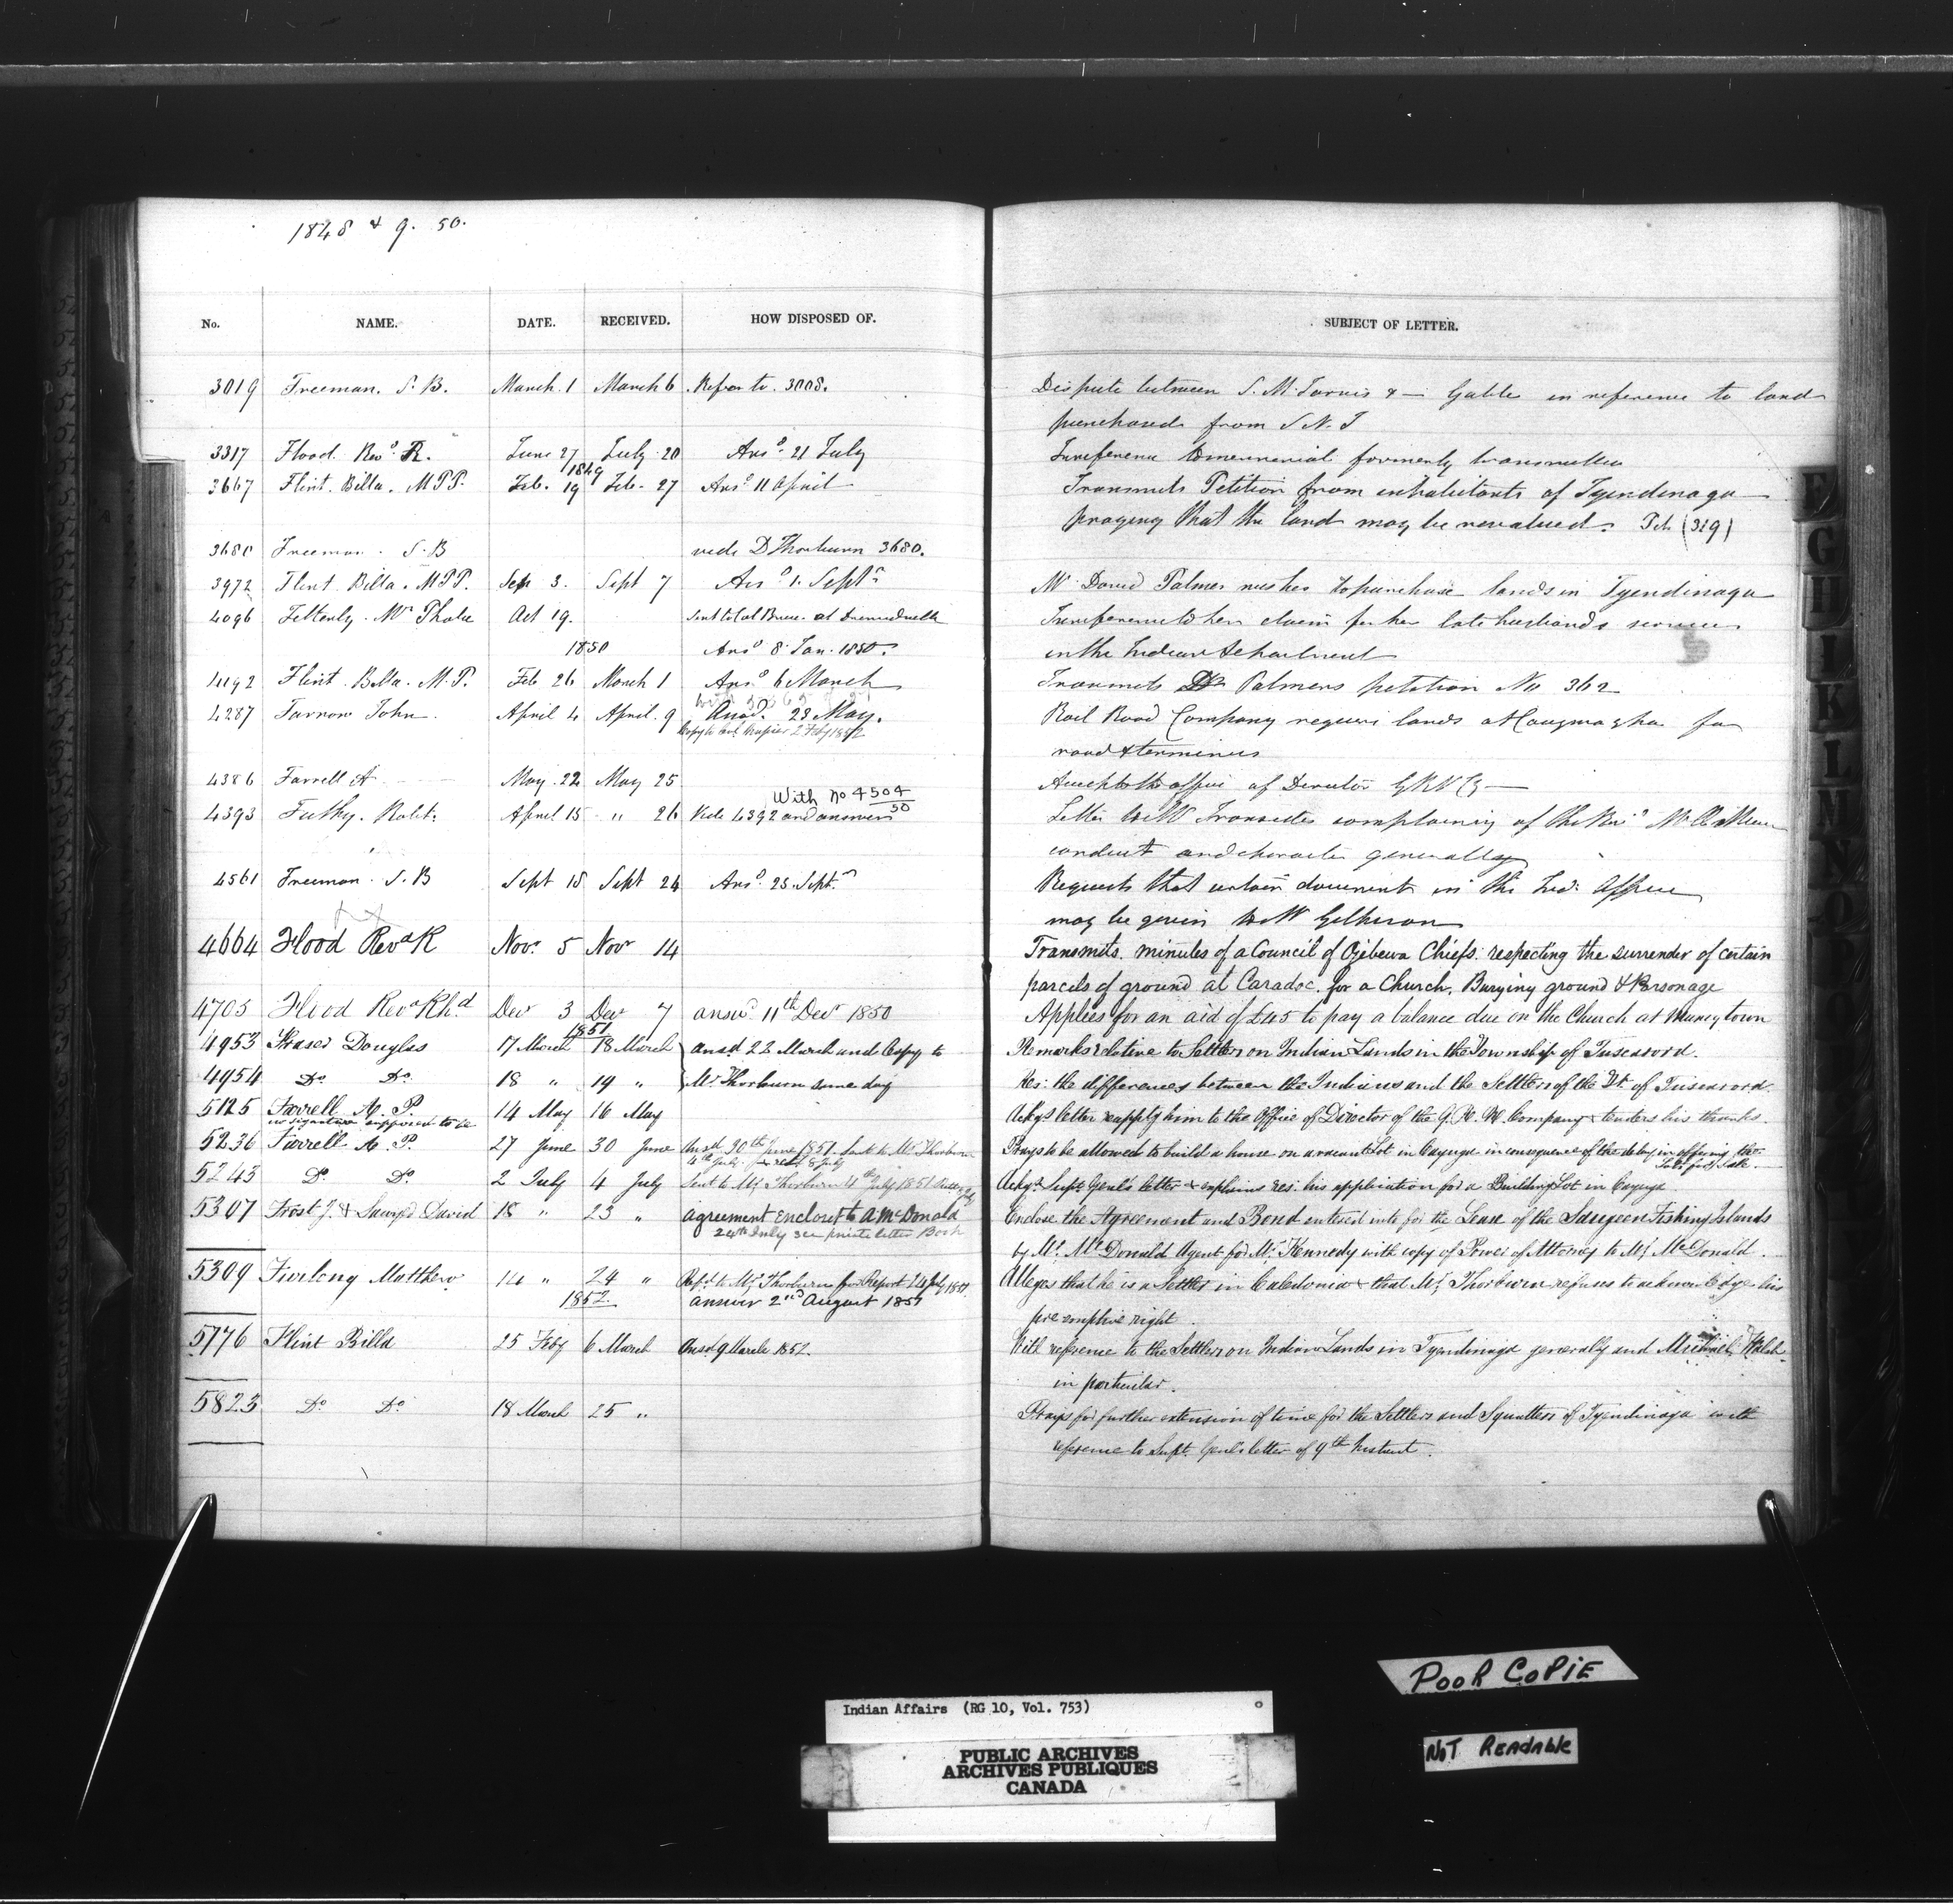 1848 & 9. 50.
No. NAME. DATE. RECEIVED. HOW DISPOSED OF. SUBJECT OF LETTER.
3019 Freeman. S. B. March. 1 March 6 Refer to. 3008. Dispute between S. M. Jarvis & — Gable in reference to land
purchased from S N. I
3317 Flood Revd R. June 27 July 20 Ansd. 21 July In reference to memorial formerly transmitted
1849
3667 Flint. Billa. M P P. Feb. 19 Feb. 27 Ansd 11 April Transmits Petition from inhabitants of Tyendinaga
praying that the land may be revalued. Pet. (319)
3680 Freeman. S. B vide D Thorburn 3680.
3972 Flint Billa. M P P. Sep 3. Sept 7 Ansd 1. Septr Mr David Palmer wishes to purchase lands in Tyendinaga
4096 Oct 19. Sent to Col Bruce at Drummondville In reference to her claim for her late husband's services
1850 Ansd 8. Jan. 1850. in the Indian Department
4192 Flint. Billa. M. P. Feb 26 March 1 Ansd 6 March Transmits D Palmers petition No 362
4287 Farrow John. April 4 April. 9 Ansd. 23 May. Rail Road Company require lands at Caugnagha for
Copy to Col. Napier 2 Feby 1852 road & terminus
4386 Farrell A May. 22 May 25 Accepts the office of Director G R N Co
With No 4504/50
4393 Futhy. Robt. April 15 " 26 Vide 4392 and answer Letter to W complaining of the Revd
conduct and character generally
4561 Freeman. S. B Sept 18 Sept 24 Ansd. 25. Sept. Requests that certain document in the Ind. Office
may be given to Mr Gilkison
4664 Flood Revd R Novr 5 Novr 14 Transmits. minutes of a Council of Ojebewa Chiefs. respecting the surrender of certain
parcels of ground at Caradoc. for a Church, Burying ground & Parsonage
4705 Flood Revd Rhd Decr 3 Decr 7 answd 11th Decr 1850 Applies for an aid of £45 to pay a balance due on the Church at Munceytown
1851
4953 Fraser Douglas 17 March 18 March ansd 22 March and Copy to Remarks relative to Settlers on Indian Lands in the Township of Tuscarora.
4954 Do Do 18 " 19 " Mr Thorburn same day Res: the differences between the Indians and the Settlers of the Tp. of Tuscarora.
5125 Farrell A. P. 14 May 16 May Ackgs letter apptg him to the Office of Director of the G. R. N. Company & tenders his thanks.
no signature supposed to be
5236 Farrell A. P. 27 June 30 June Ansd 30th June 1851. Sent to Mr Thorburn Prays to be allowed to build a house on a vacant Lot in Cayuga in consequence of the delay in offering the
4th July. & retd 8 July Lots for Sale.
5243 Do Do 2 July 4 July Sent to Mr Thorburn 4th July 1851 Ackgs Supt Genl's letter & explains res: his application for a Building Lot in Cayuga
5307 Frost J. & Sawyer David 18 " 23 " agreement enclosed to A McDonald Enclose the Agreement and Bond entered into for the Lease of the Saugeen Fishing Islands
24th July see private letter Book by Mr. McDonald Agent for Mr Kennedy with copy of Power of Attorney to Mr McDonald.
5309 Furlong Matthew 14 " 24 " Refd to Mr Thorburn for Report 24 July 1851. Alleges that he is a Settler in Caledonia & that Mr Thorburn refuses to acknowledge his
1852. answer 2nd August 1851 pre emptive right.
5776 Flint Billa 25 Feby 6 March Ansd 9 March 1852. With reference to the Settlers on Indian Lands in Tyendinaga generally and Michael Walsh
in particular.
5823 Do Do 18 March 25 " Prays for further extension of time for the Settlers and Squatters of Tyendinaga with
reference to Supt. Genl's letter of 9th Instant.
F
G
H
I
K
L
POOR COPIE
NOT READABLE
Indian Affairs (RG 10, Vol. 753)
PUBLIC ARCHIVES
ARCHIVES PUBLIQUES
CANADA